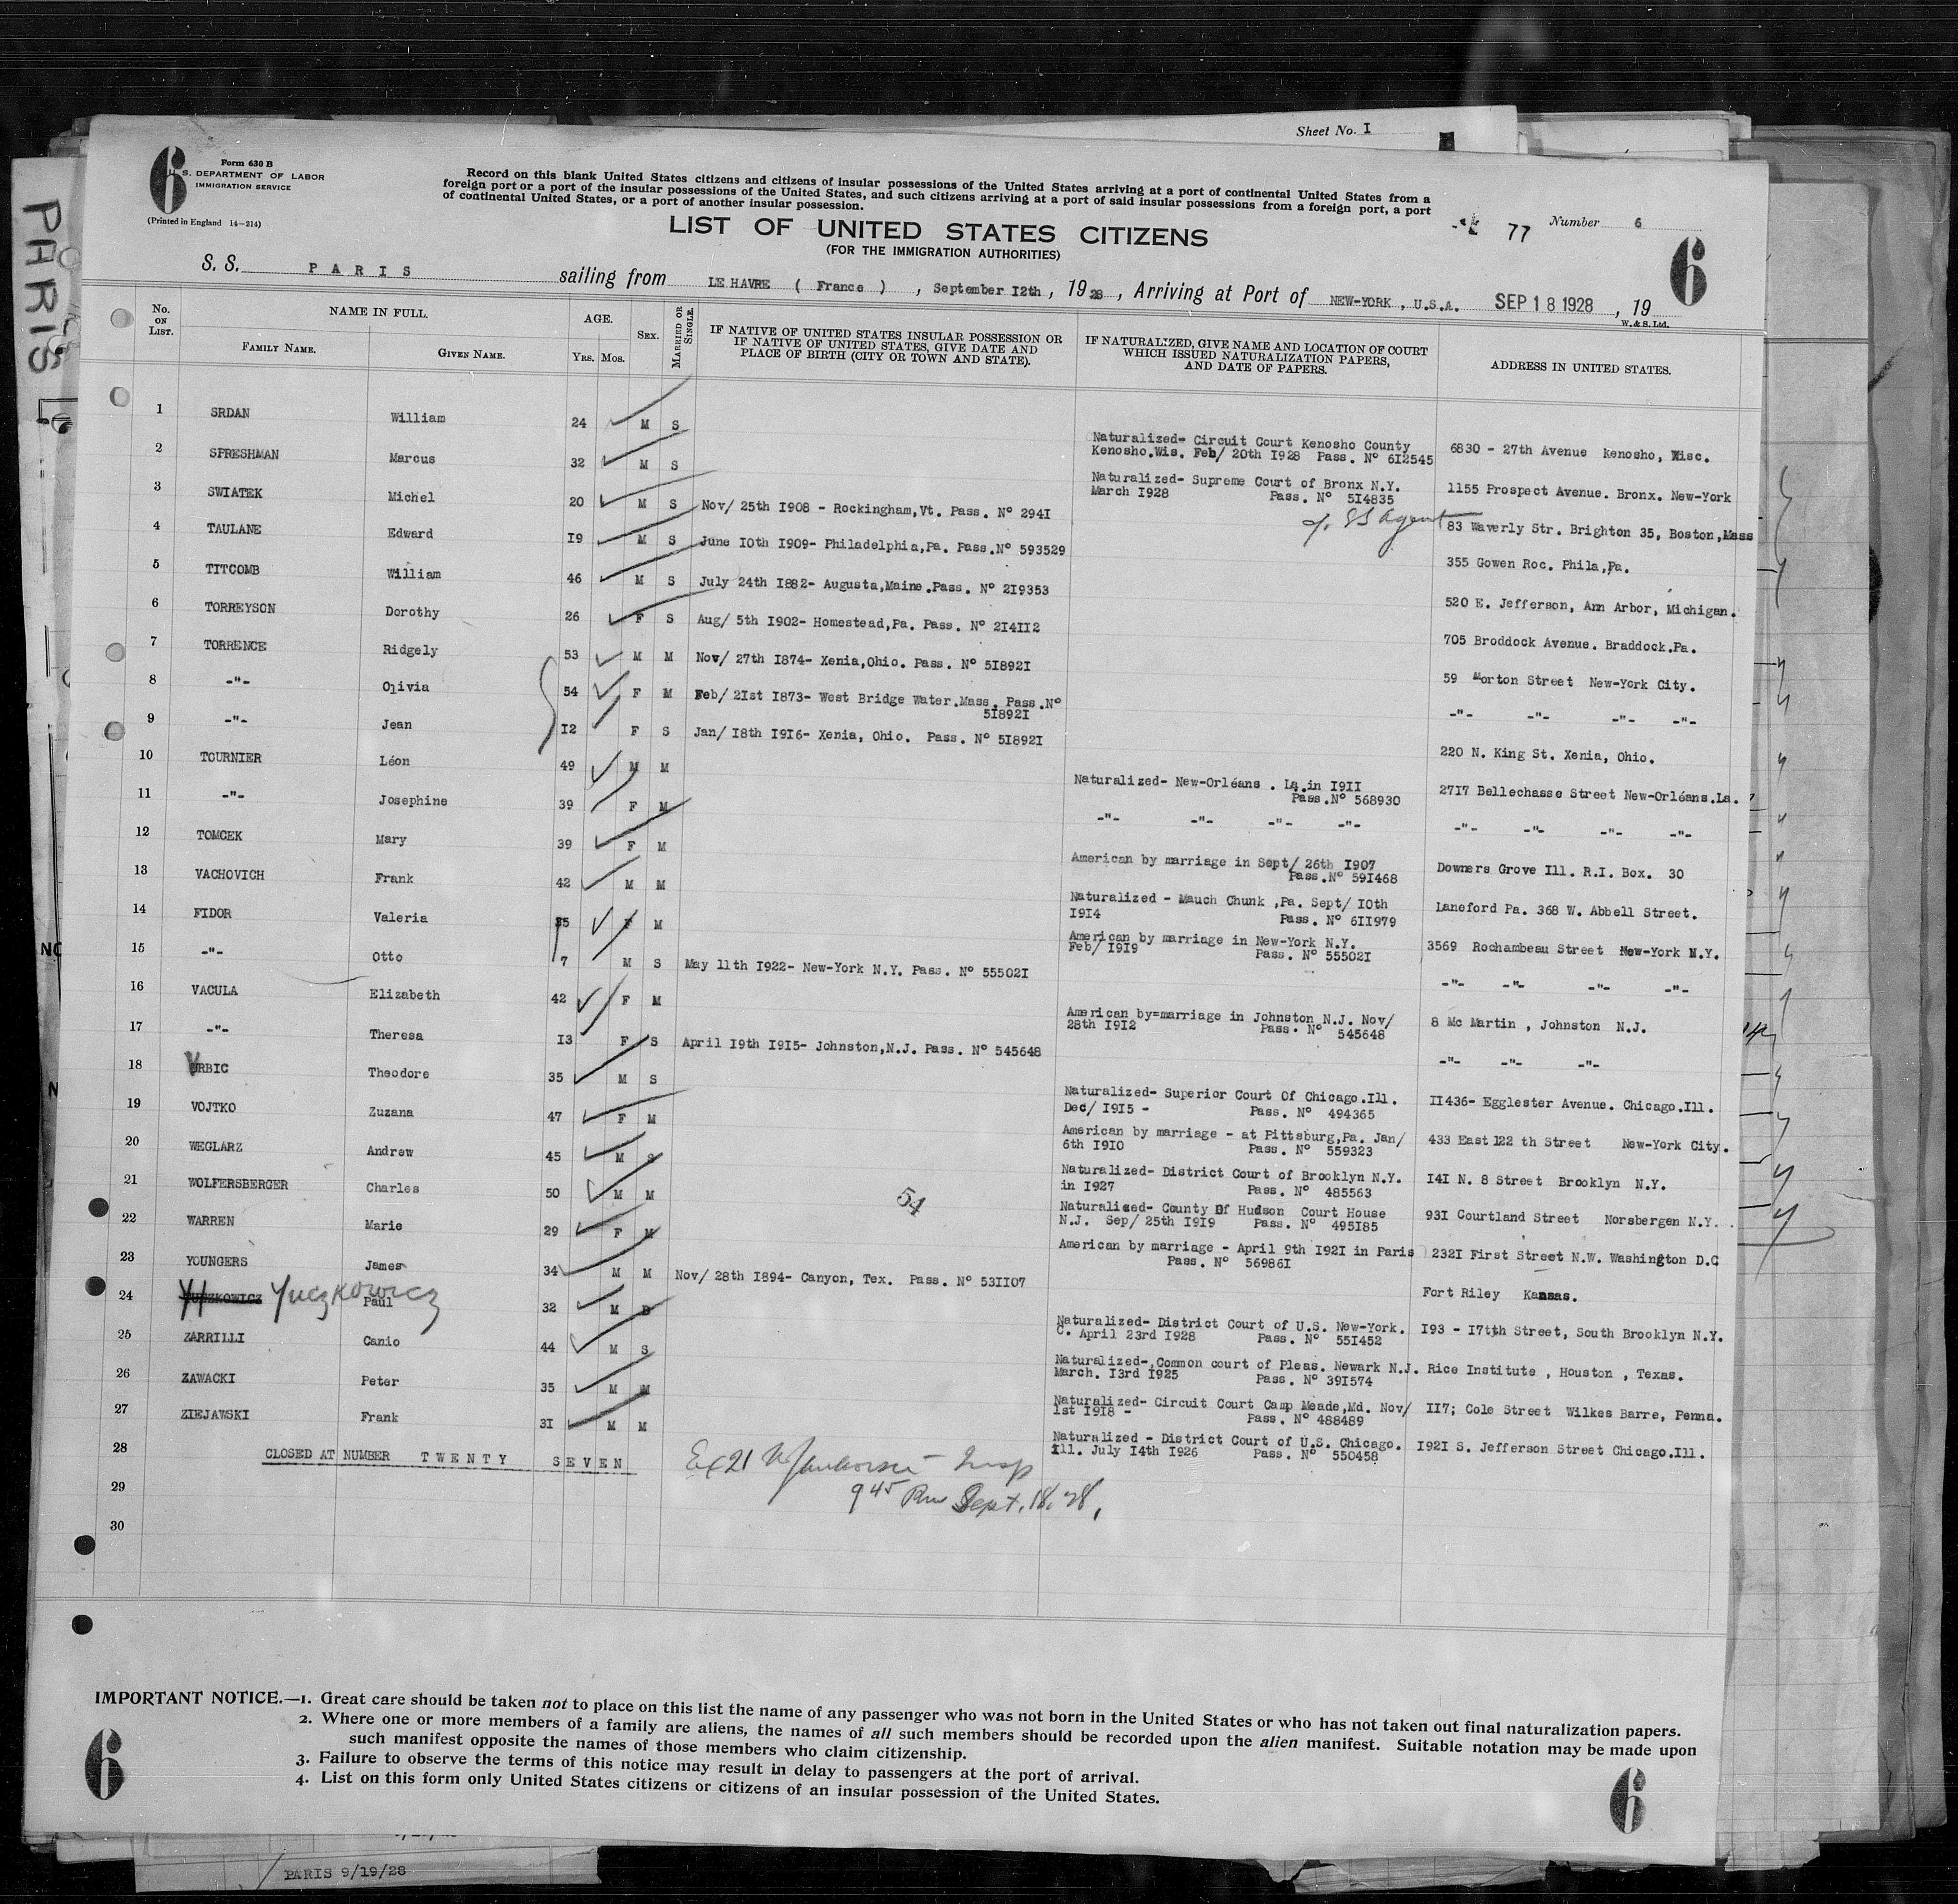 Sheet No. I
Form 630 B
U.S. DEPARTMENT OF LABOR
IMMIGRATION SERVICE
(Printed in England 14-214)
6
Record on this blank United States citizens and citizens of insular possessions of the United States arriving at a port of continental United States from a
foreign port or a port of the insular possessions of the United States, and such citizens arriving at a port of said insular possessions from a foreign port, a port
of continental United States, or a port of another insular possession.
LIST OF UNITED STATES CITIZENS
(FOR THE IMMIGRATION AUTHORITIES)
77
Number 6
6
PARIS
S. S. PARIS sailing from LE HAVRE ( France ) , September I2th , 1928 , Arriving at Port of NEW-YORK , U.S.A. SEP 18 1928 , 19
W. & S. Ltd.
No. ON LIST.
NAME IN FULL.
FAMILY NAME.
GIVEN NAME.
AGE.
YRS. MOS.
SEX.
MARRIED OR SINGLE.
IF NATIVE OF UNITED STATES INSULAR POSSESSION OR
IF NATIVE OF UNITED STATES, GIVE DATE AND
PLACE OF BIRTH (CITY OR TOWN AND STATE).
IF NATURALIZED, GIVE NAME AND LOCATION OF COURT
WHICH ISSUED NATURALIZATION PAPERS,
AND DATE OF PAPERS.
ADDRESS IN UNITED STATES.
1 SRDAN William 24 M S Naturalized- Circuit Court Kenosho County
Kenosho.Wis. Feb/ 20th I928 Pass. Nº 6I2545 6830 - 27th Avenue Kenosho, Wisc.
2 SPRESHMAN Marcus 32 M S Naturalized- Supreme Court of Bronx N.Y.
March I928 Pass. Nº 5I4835 1155 Prospect Avenue. Bronx. New-York
3 SWIATEK Michel 20 M S Nov/ 25th I908 - Rockingham,Vt. Pass. Nº 294I 83 Waverly Str. Brighton 35, Boston,Mass
4 TAULANE Edward I9 M S June I0th I909- Philadelphia,Pa. Pass.Nº 593529 355 Gowen Roc. Phila,Pa.
5 TITCOMB William 46 M S July 24th I882- Augusta,Maine.Pass. Nº 2I9353 520 E. Jefferson, Ann Arbor, Michigan.
6 TORREYSON Dorothy 26 F S Aug/ 5th I902- Homestead,Pa. Pass. Nº 2I4II2 705 Broddock Avenue. Braddock.Pa.
7 TORRENCE Ridgely 53 M M Nov/ 27th I874- Xenia,Ohio. Pass. Nº 5I892I 59 Morton Street New-York City.
8 -"- Olivia 54 F M Feb/ 2Ist I873- West Bridge Water.Mass. Pass.Nº
5I892I -"- -"- -"- -"-
9 -"- Jean I2 F S Jan/ I8th I9I6- Xenia, Ohio. Pass. Nº 5I892I 220 N. King St. Xenia, Ohio.
10 TOURNIER Léon 49 M M Naturalized- New-Orléans . La.in I9II
Pass.Nº 568930 27I7 Bellechasse Street New-Orléans.La.
11 -"- Josephine 39 F M -"- -"- -"- -"- -"- -"- -"- -"-
12 TOMCEK Mary 39 F M American by marriage in Sept/ 26th I907
Pass.Nº 59I468 Downers Grove Ill. R.I. Box. 30
13 VACHOVICH Frank 42 M M Naturalized - Mauch Chunk ,Pa. Sept/ I0th
I9I4 Pass. Nº 6II979 Laneford Pa. 368 W. Abbell Street.
14 FIDOR Valeria 35 F M American by marriage in New-York N.Y.
Feb/ I9I9 Pass. Nº 55502I 3569 Rochambeau Street New-York N.Y.
15 -"- Otto 7 M S May 11th I922- New-York N.Y. Pass. Nº 55502I -"- -"- -"- -"-
16 VACULA Elizabeth 42 F M American by=marriage in Johnston N.J. Nov/
28th I9I2 Pass. Nº 545648 8 Mc Martin , Johnston N.J.
17 -"- Theresa I3 F S April I9th I9I5- Johnston,N.J. Pass. Nº 545648 -"- -"- -"-
18 VRBIC Theodore 35 M S Naturalized- Superior Court Of Chicago.Ill.
Dec/ I9I5 - Pass. Nº 494365 II436- Egglester Avenue. Chicago.Ill.
19 VOJTKO Zuzana 47 F M American by marriage - at Pittsburg,Pa. Jan/
6th I9I0 Pass. Nº 559323 433 East I22 th Street New-York City.
20 WEGLARZ Andrew 45 M S Naturalized- District Court of Brooklyn N.Y.
in I927 Pass. Nº 485563 I4I N. 8 Street Brooklyn N.Y.
21 WOLFERSBERGER Charles 50 M M Naturalized- County Of Hudson Court House
N.J. Sep/ 25th I9I9 Pass. Nº 495I85 93I Courtland Street Norsbergen N.Y.
54
22 WARREN Marie 29 F M American by marriage - April 9th I92I in Paris
Pass. Nº 56986I 232I First Street N.W. Washington D.C
23 YOUNGERS James 34 M M Nov/ 28th I894- Canyon, Tex. Pass. Nº 53II07 Fort Riley Kansas.
24 Yuczkowicz Paul 32 M Naturalized- District Court of U.S. New-York.
C. April 23rd I928 Pass. Nº 55I452 I93 - I7tth Street, South Brooklyn N.Y.
25 ZARRILLI Canio 44 M S Naturalized- Common court of Pleas. Newark N.J.
March. I3rd I925 Pass. Nº 39I574 Rice Institute , Houston , Texas.
26 ZAWACKI Peter 35 M M Naturalized- Circuit Court Camp Meade,Md. Nov/
1st I9I8 - Pass. Nº 488489 II7; Cole Street Wilkes Barre, Penna.
27 ZIEJAWSKI Frank 3I M M Naturalized - District Court of U.S. Chicago.
Ill. July I4th I926 Pass. Nº 550458 I92I S. Jefferson Street Chicago.Ill.
28 CLOSED AT NUMBER TWENTY SEVEN
Insp
9 45 Pm Sept. 18, 28,
29
30
IMPORTANT NOTICE.—1. Great care should be taken not to place on this list the name of any passenger who was not born in the United States or who has not taken out final naturalization papers.
2. Where one or more members of a family are aliens, the names of all such members should be recorded upon the alien manifest. Suitable notation may be made upon
such manifest opposite the names of those members who claim citizenship.
3. Failure to observe the terms of this notice may result in delay to passengers at the port of arrival.
4. List on this form only United States citizens or citizens of an insular possession of the United States.
6
6
PARIS 9/19/28